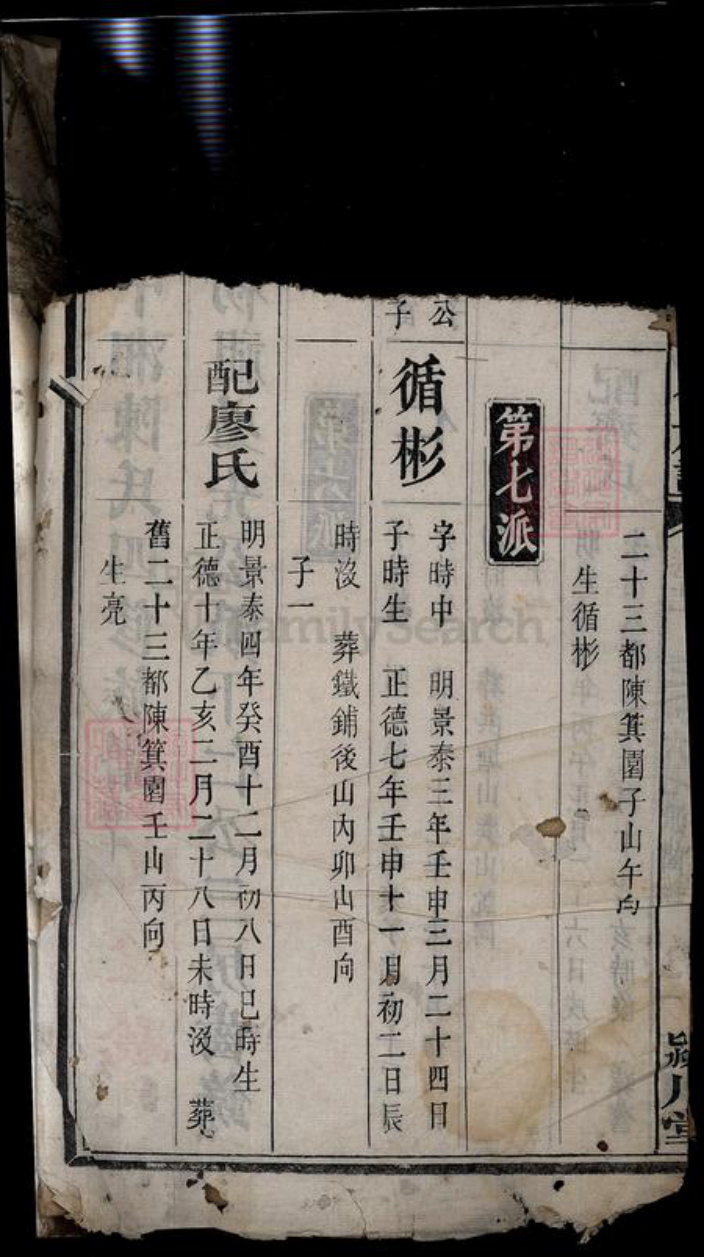 二十三都陳箕園子山午向
生循彬
第七派
公
子
循彬
字時中 明景泰三年壬申三月二十四日
子時生 正德七年壬申十一月初二日辰
時沒 葬鐵鋪後山內卯山酉向
子一
配廖氏
明景泰四年癸酉十二月初八日巳時生
正德十年乙亥二月二十八日未時沒 葬
舊二十三都陳箕園壬山丙向
生亮
潁川堂
FamilySearch